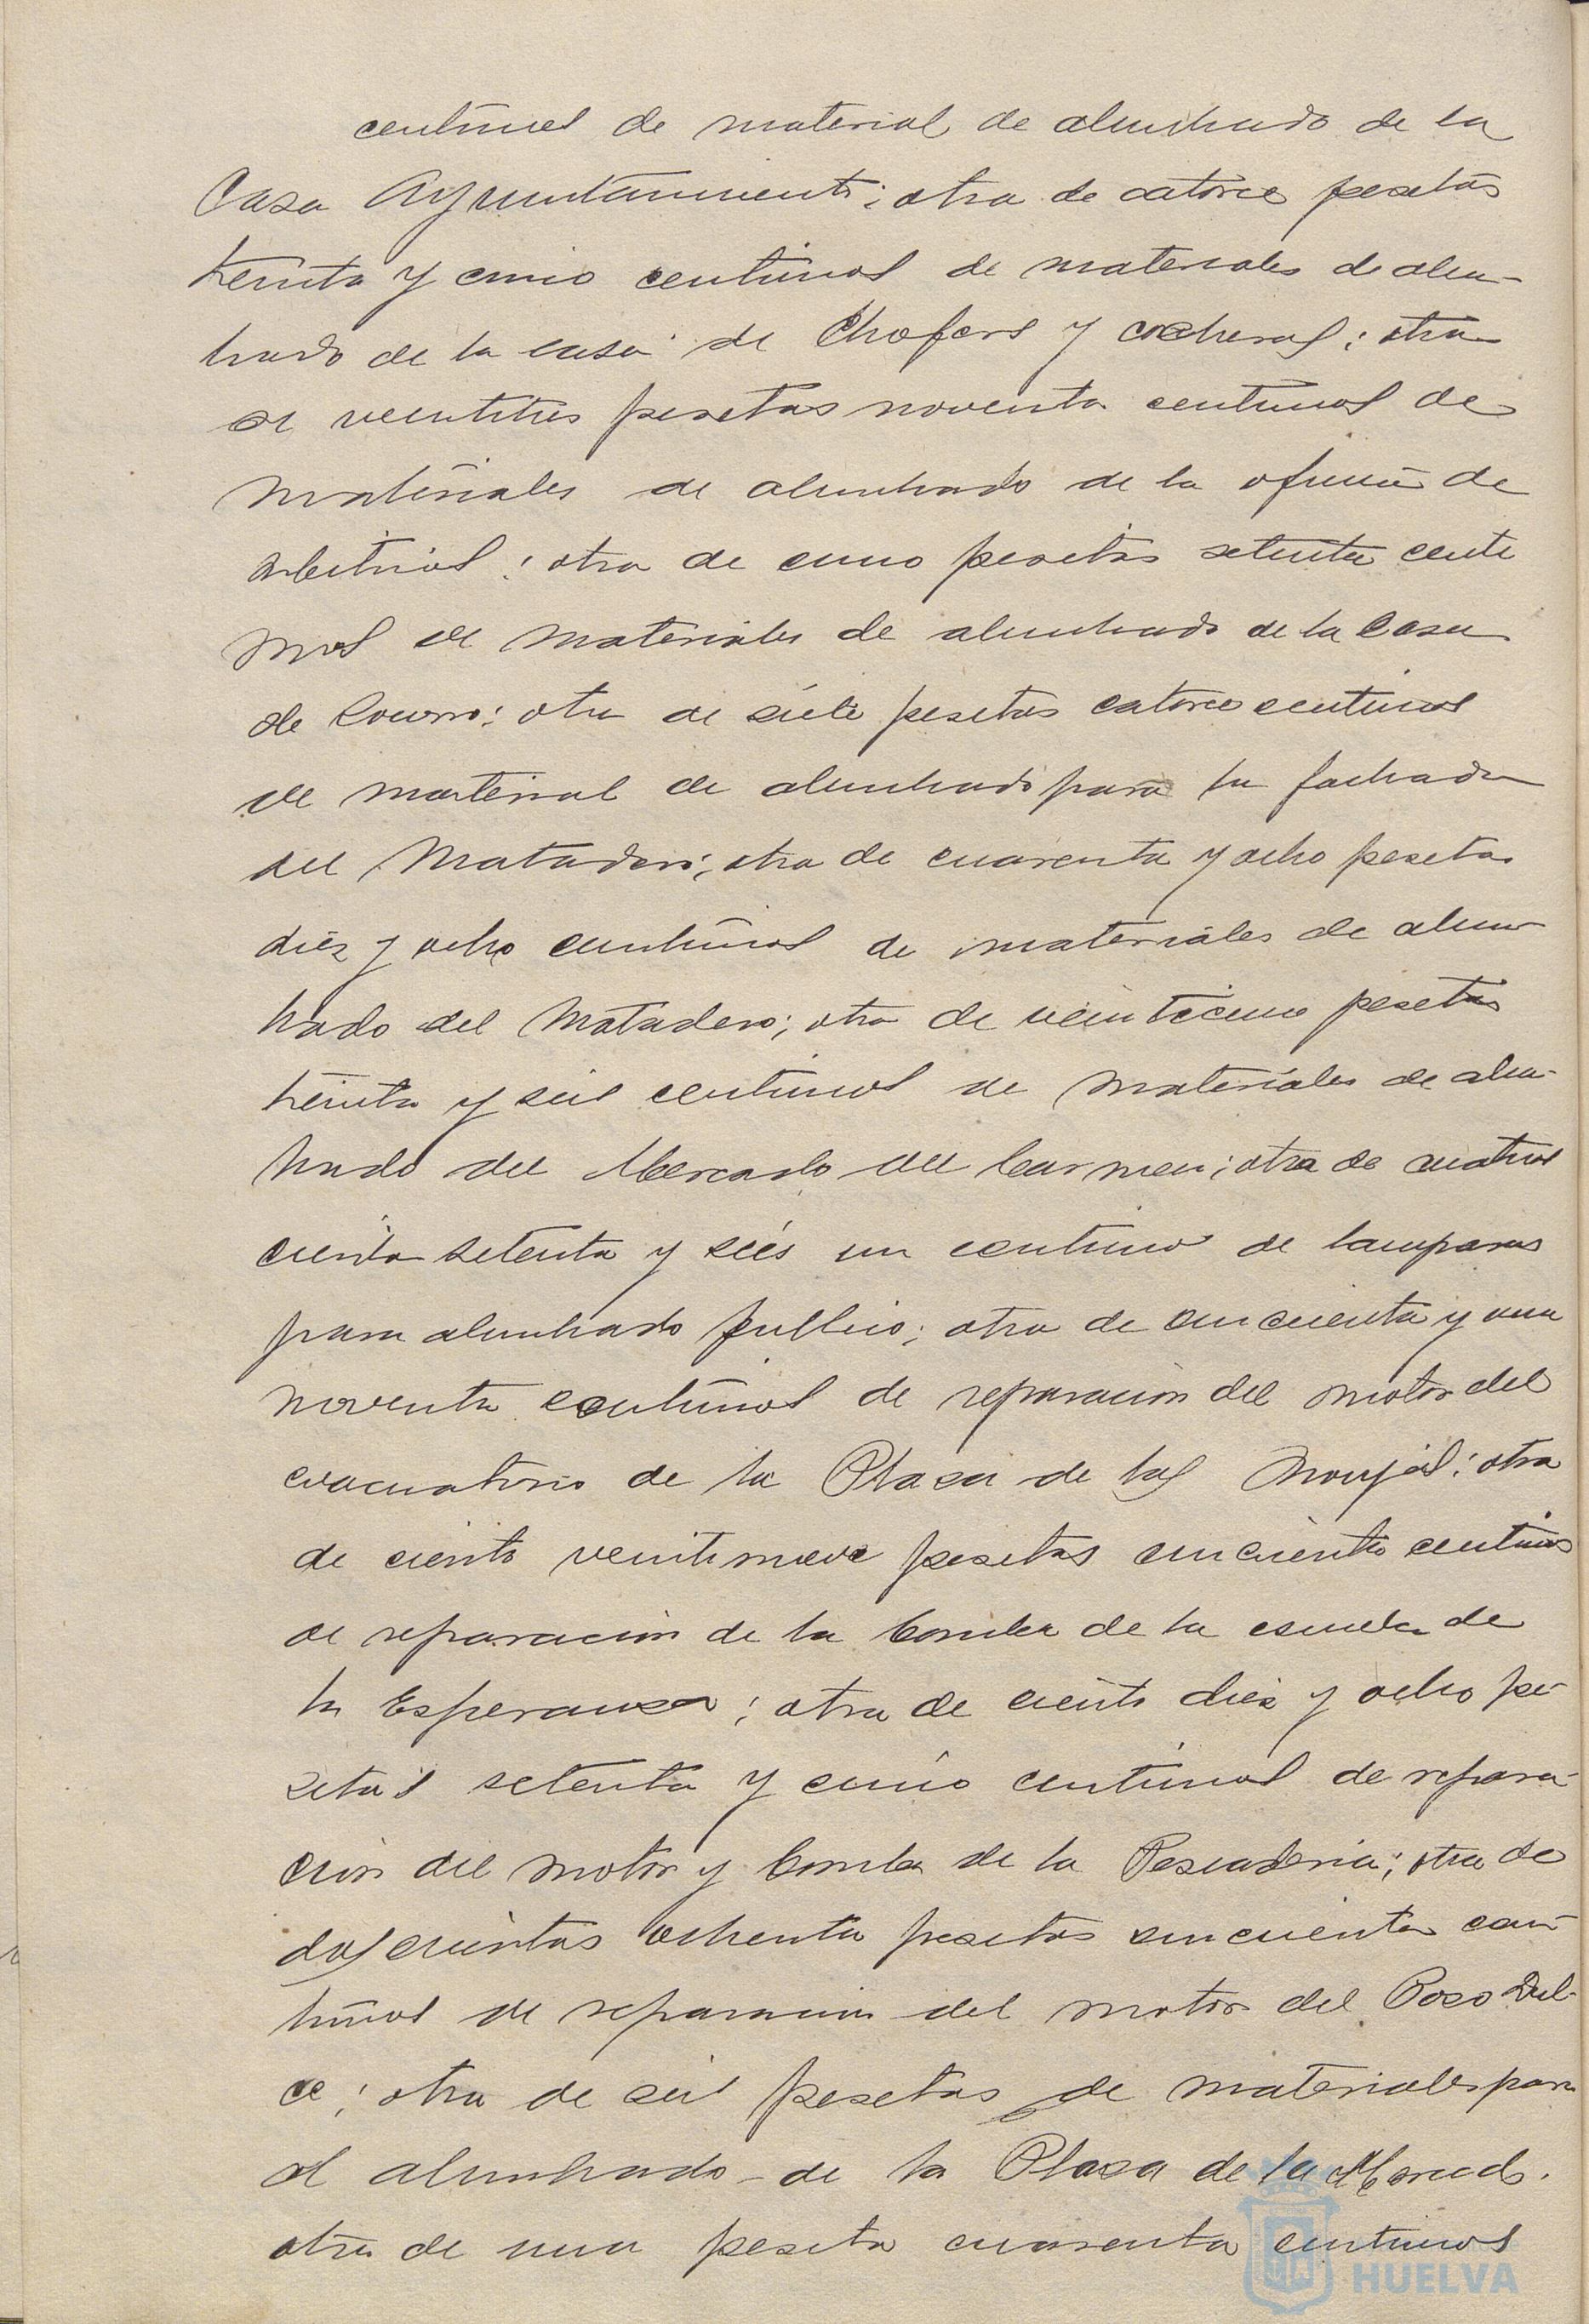 centimos de material de alumbrado de la
Casa Ayuntamiento; otra de catorce pesetas
treinta y cinco centimos de materiales de alum-
brado de la casa de Chofers y cocheras; otra
de veintitres pesetas noventa centimos de
materiales de alumbrado de la oficina de
arbitrios; otra de cinco pesetas setenta centi
mos de materiales de alumbrado de la Casa
de Socorro; otra de siete pesetas catorce centimos
de material de alumbrado para la fachada
del Matadero; otra de cuarenta y ocho pesetas
diez y ocho centimos de materiales de alum-
brado del Matadero; otra de veinticinco pesetas
treinta y seis centimos de materiales de alum-
brado del Mercado del Carmen; otra de cuatros
cienta setenta y seis un centimo de lamparas
para alumbrado publico; otra de cincuenta y una
noventa centimos de reparacion del motor del
evacuatorio de la Plaza de las Monjas; otra
de ciento veintinueve pesetas cincuenta centimos
de reparacion de la bomba de la escuela de
la Esperanza; otra de ciento diez y ocho pe-
setas setenta y cinco centimos de repara-
cion del motor y bomba de la Pescaderia; otra de
doscientas ochenta pesetas cincuenta cen-
timos de reparacion del motor del Pozo Dul-
ce; otra de seis pesetas de materiales para
el alumbrado de la Plaza de la Merced.
otra de una peseta cuarenta centimos
HUELVA